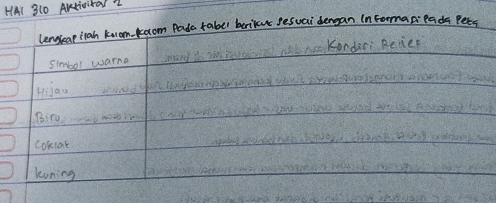 HAI 310 Aktivitas 2
Lengkapilah kolom-kolom pada tabel berikut sesuai dengan informasi pada peta
Simbol warna Kondisi Relief
Hijau
Biru
Coklat
Kuning